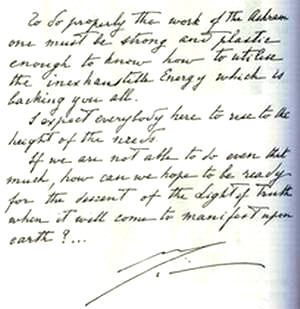 To do properly the work of the Ashram
one must be strong and plastic
enough to know how to utilise
the inexhaustible Energy which is
backing you all.
I expect everybody here to rise to the
height of the needs.
If we are not able to do even that
much, how can we hope to be ready
for the descent of the Light of Truth
when it will come to manifest upon
earth ?...